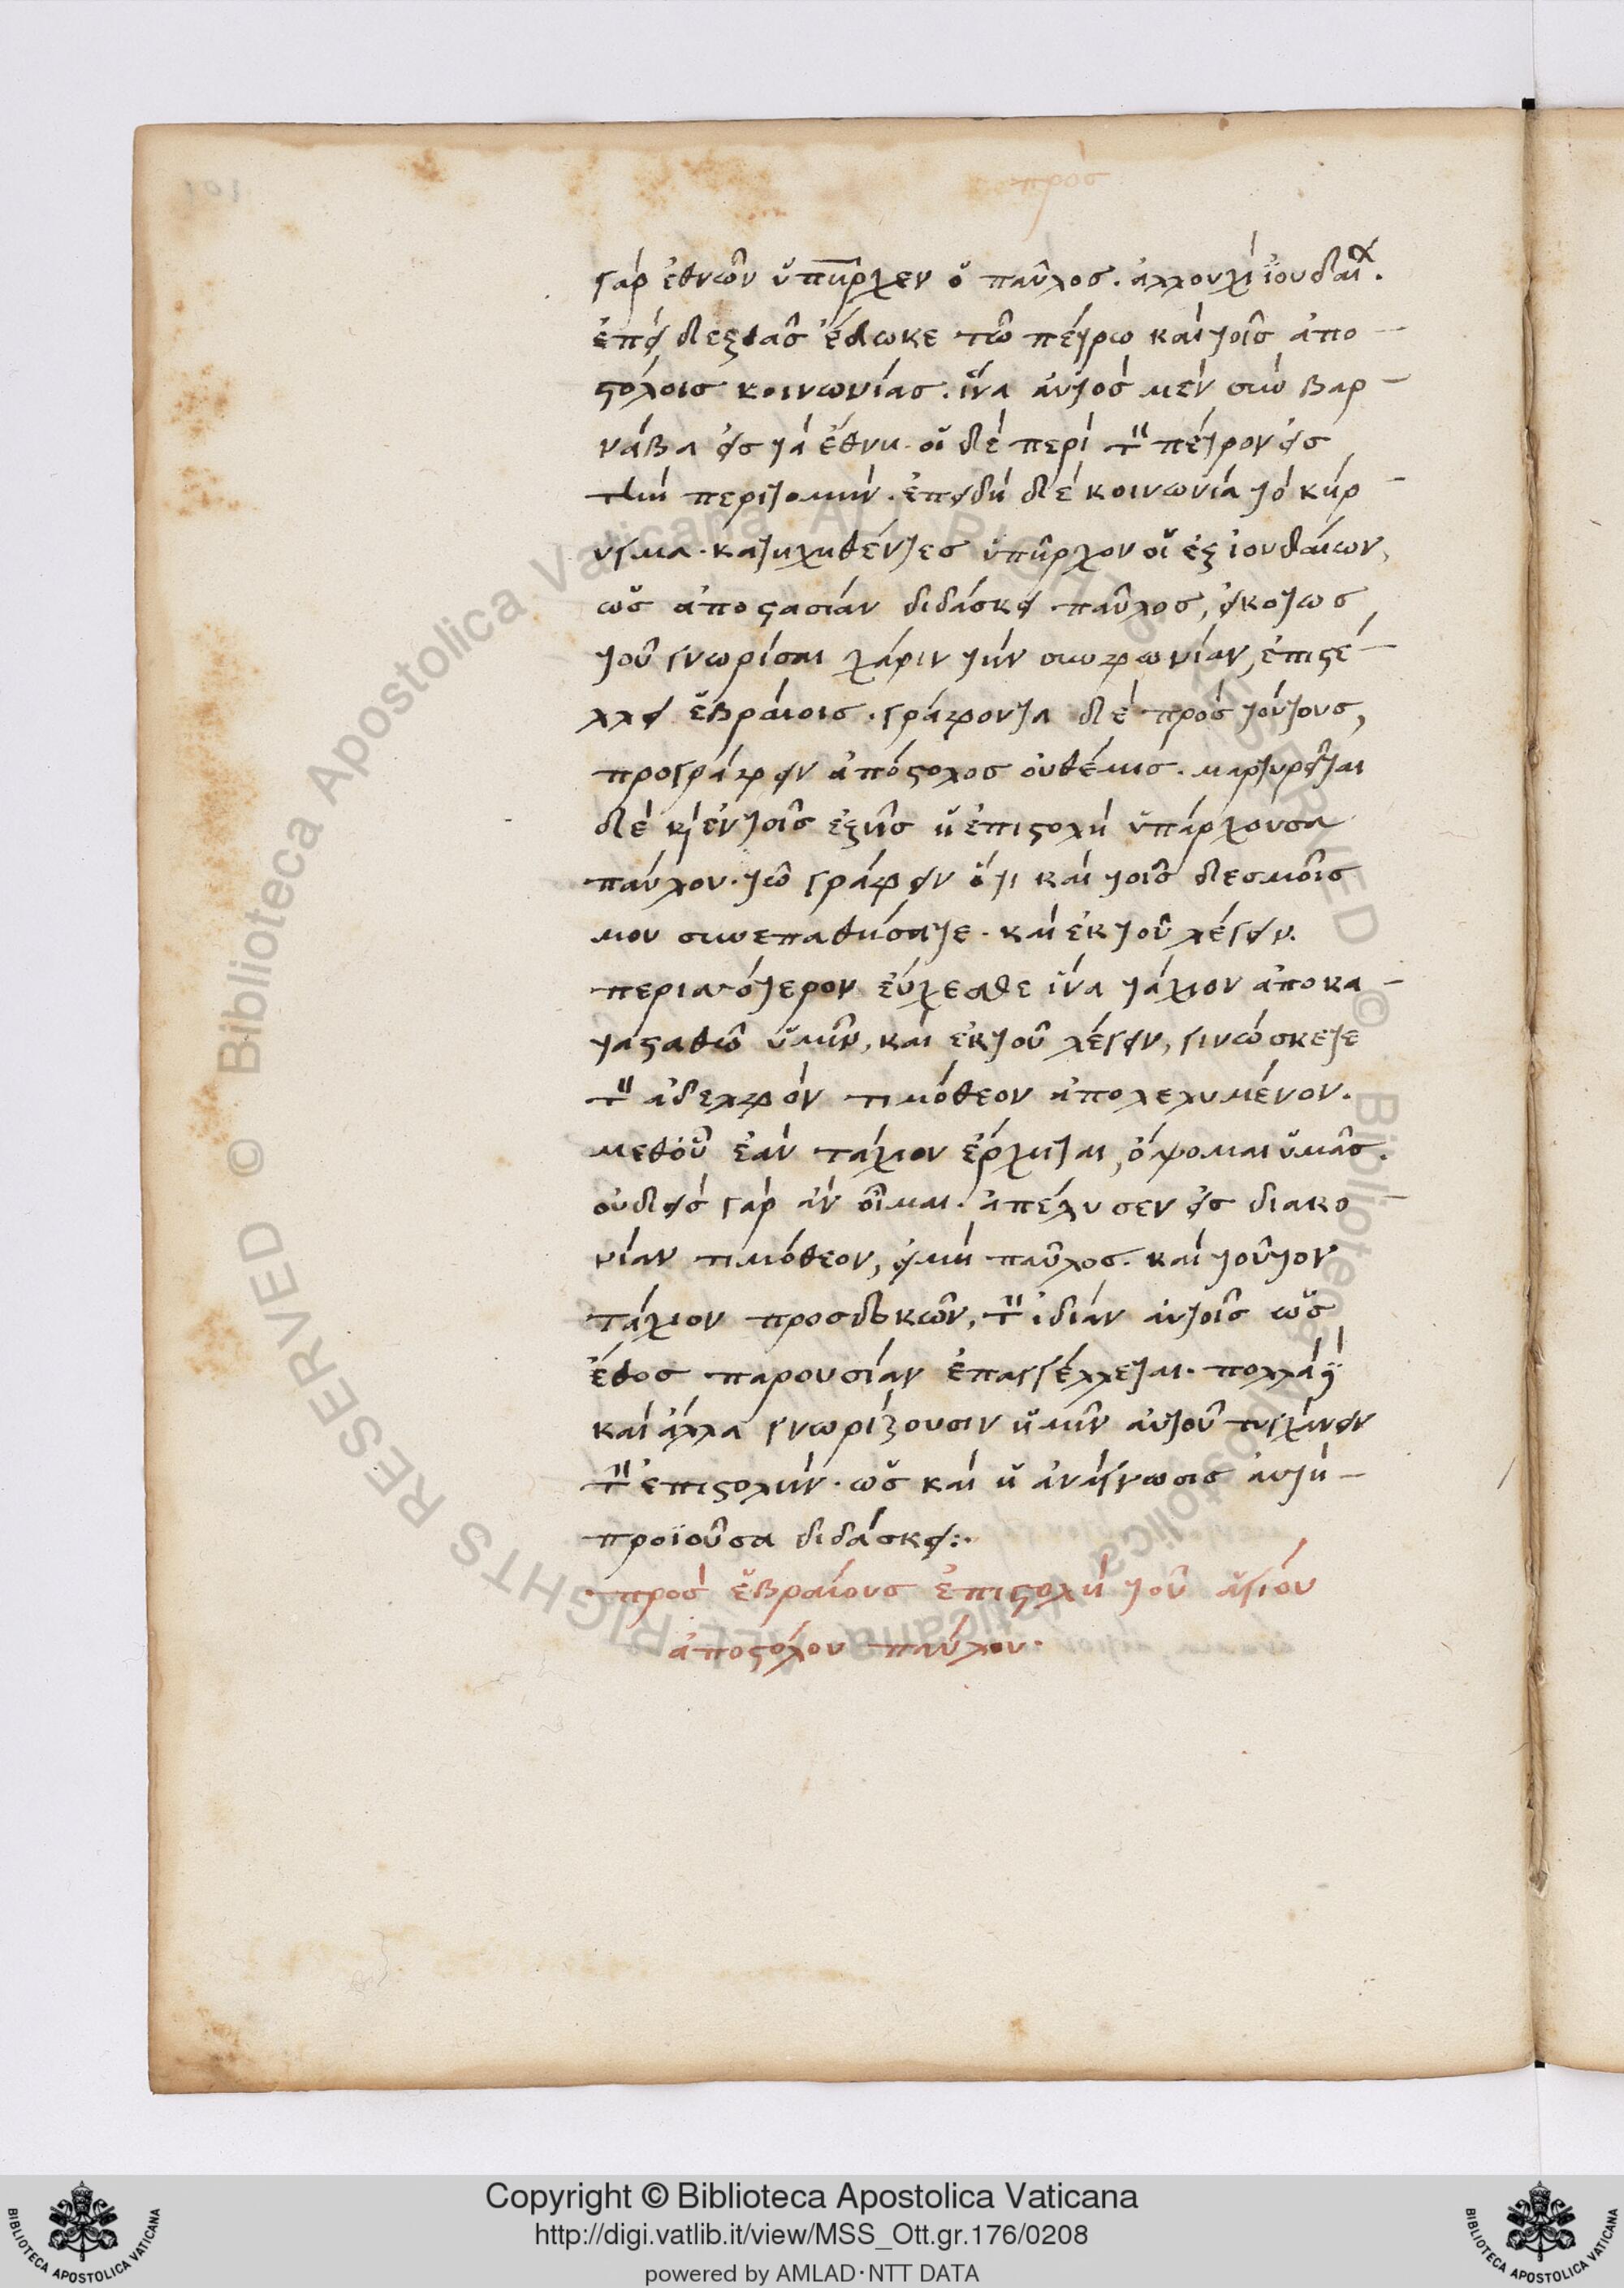 πρὸς
γὰρ ἐθνῶν ὑπῆρχεν ὁ παῦλος. ἀλλουχὶ ἰουδαί.
ἐπεὶ δεξιὰς ἔδωκε τῶ πέτρω καὶ τοῖς ἀπο
στόλοις κοινωνίας. ἵνα αὐτὸς μὲν σὺν βαρ
νάβα εἰς τὰ ἔθνη. οἱ δὲ περὶ τὸν πέτρον εἰς
τὴν περιτομήν. ἐπειδὴ δὲ κοινωνία τὸ κήρ
υγμα. κατηχηθέντες ὑπῆρχον οἱ ἐξ ἰουδαίων,
ὡς ἀποστασίαν διδάσκει παῦλος, εἰκότως
τοῦ γνωρίσαι χάριν τὴν συμφωνίαν, ἐπιστέ
λλει ἑβραίοις. γράφοντα δὲ πρὸς τούτους,
προγράφειν ἀπόστολος οὐ θέμις. μαρτυρεῖται
δὲ κἀν τοῖς ἑξῆς ἡ ἐπιστολὴ ὑπάρχουσα
παύλου. τῶ γράφειν ὅτι καὶ τοῖς δεσμοῖς
μου συνεπαθήσατε. καὶ ἐκ τοῦ λέγειν.
περισσότερον εὔχεσθε ἵνα τάχιον ἀποκα
τασταθῶ ὑμῖν, καὶ ἐκ τοῦ λέγειν, γινώσκετε
τὸν ἀδελφὸν τιμόθεον ἀπολελυμένον.
μεθοῦ ἐὰν τάχιον ἔρχηται, ὄψομαι ὑμᾶς.
οὐδεὶς γὰρ ἂν οἶμαι. ἀπέλυσεν εἰς διακο
νίαν τιμόθεον, εἰ μὴ παῦλος. καὶ τοῦτον
τάχιον προσδοκῶν, τὴν ἰδίαν αὐτοῖς ὡς
ἔθος παρουσίαν ἐπαγγέλλεται. πολλὰ δὲ
καὶ ἄλλα γνωρίζουσιν ἡμῖν αὐτοῦ τυγχάνειν
τὴν ἐπιστολήν. ὡς καὶ ἡ ἀνάγνωσις αὐτὴ
προϊοῦσα διδάσκει:.
πρὸς ἑβραίους ἐπιστολὴ τοῦ ἁγίου
ἀποστόλου παύλου.
Copyright © Biblioteca Apostolica Vaticana
http://digi.vatlib.it/view/MSS_Ott.gr.176/0208
powered by AMLAD·NTT DATA